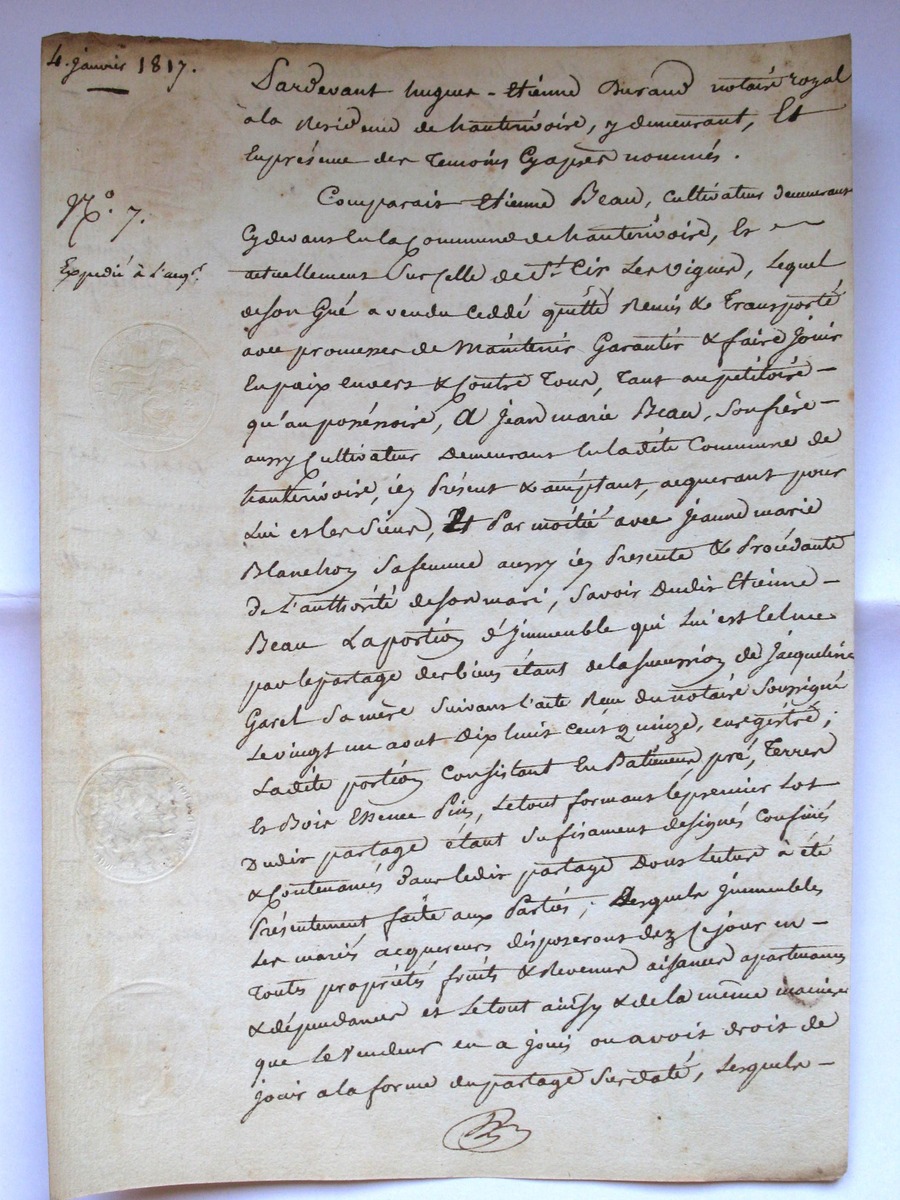 4. janvier 1817.
Pardevant hugues-Etienne Durand notaire royal
à la Residence de hauterivoire, y demeurant, Et
En présence des Temoins Cy après nommés.
N.o 7.
Expedié à l'acq.r
Comparait Etienne Beau, cultivateur demeurant
Cy devant En la Commune de hauterivoire, Et
actuellement Sur Celle de St. Cir Les Vignes, Lequel
de Son Gré a vendu Ceddé quitté Remis & Transporté
avec promesses de Maintenir Garantir & faire Jouir
En paix envers & Contre Tous, Tant au pétitoire
qu'au possessoire, A Jean marie Beau, Son frère
aussy Cultivateur Demeurant En la dite Commune de
hauterivoire, icy Présent & acceptant, acquerant pour
Lui et les Siens, Et Par moitié avec Jeanne marie
Blanchon Sa femme aussy icy Presente & Procédante
de L'authorité de Son mari, Savoir Dudit Etienne
Beau La portion d'Immeuble qui Lui est échue
par le partage des biens étant de la Succession de Jacqueline
Garel Sa mère Suivant l'acte Reçu du notaire Soussigné
Le vingt un aout Dix huit Cent Quinze, enregistré;
Ladite portion Consistant En Batiments, pré, Terres
Et Bois Essence Pin, Le tout formant le premier Lot
Dudit partage étant Sufisament designés Confinés
& Contenancés Dans Ledit partage Dont Lecture à été
Présentement faite aux Parties; Desquels Immeubles
Les mariés acquereurs disposeront dez Ce jour en
Toutes propriétés fruits & Revenus aisances apartenances
& dépendances et Le tout ainsy & de la même maniere
que Le Vendeur en a joui ou avoit droit de
jouir a la forme du partage Sus daté, Lesquels